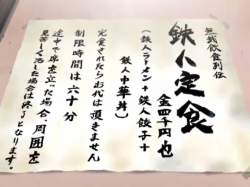 無銭飲食列伝
鉄人定食
金四千円也
(鉄人ラーメン+鉄人餃子+
鉄人中華丼)
完食されたらお代は頂きません
制限時間は六十分
途中で席を立った場合、周囲を
見苦しく汚した場合は終了となります。